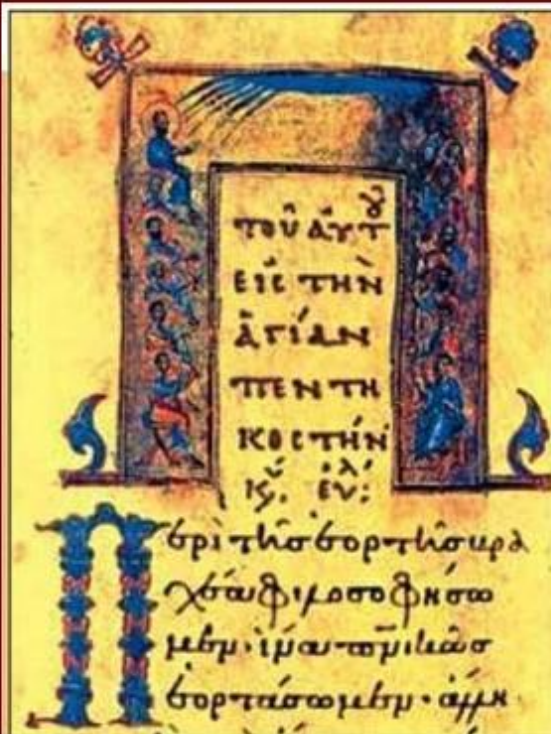 ΤΟῦ ΑΥΤȣ
ΕΙϹ ΤΗΝ
ἉΓΊΑΝ
ΠΕΝΤΗ
ΚΟϹΤΉΝ
Περὶ τῆσ ἑορτῆσ βρα
χέα φιλοσοφήσω
μεν· ἵνα π̅ν̅ικῶσ
ἑορτάσωμεν· ἄλλη